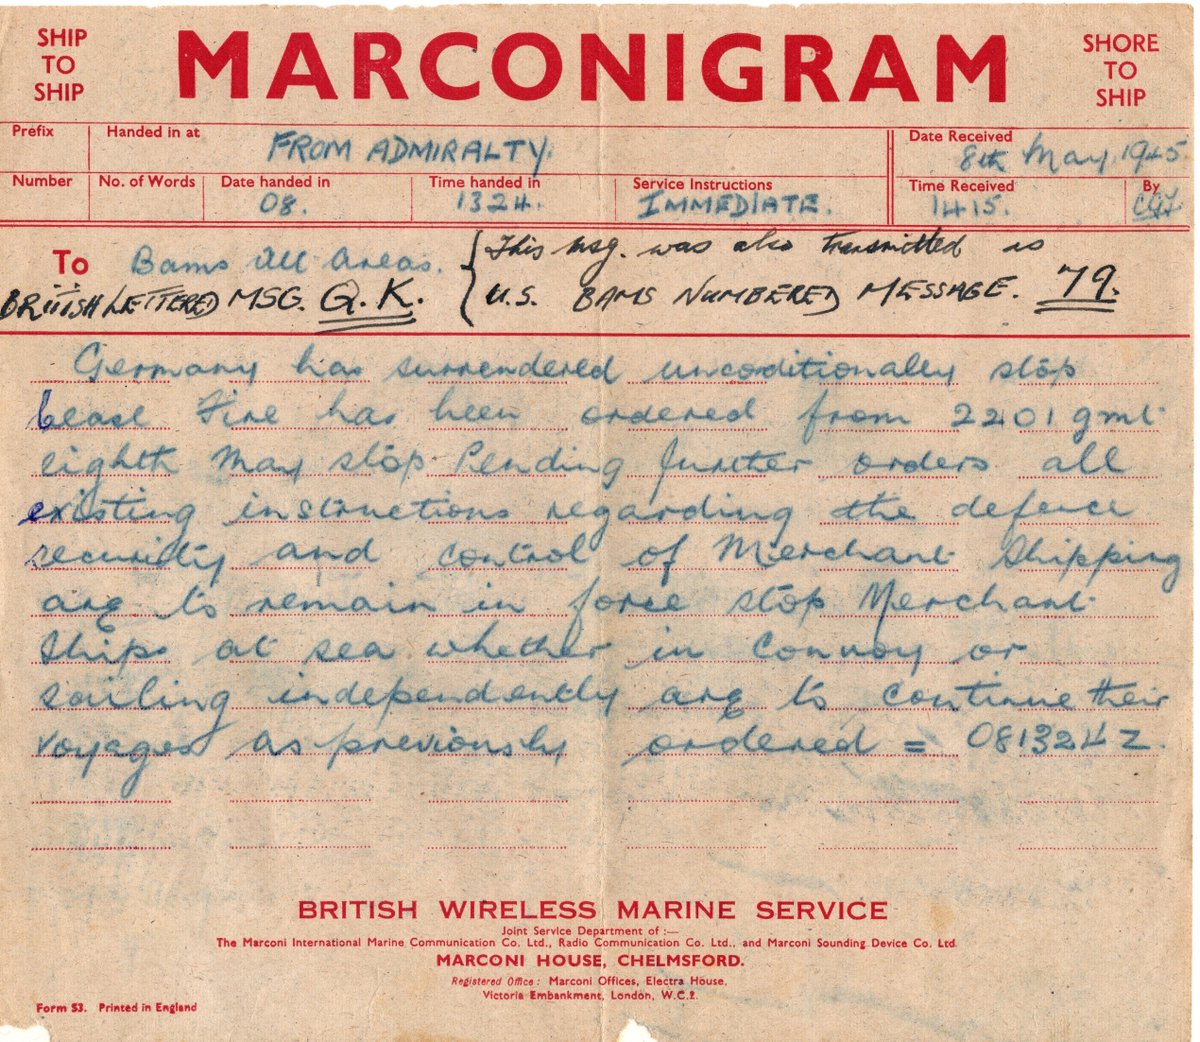 SHIP TO SHIP
MARCONIGRAM
SHORE TO SHIP
Prefix
Handed in at
FROM ADMIRALTY.
Date Received
8th May 1945
Number
No. of Words
Date handed in
08.
Time handed in
1324.
Service Instructions
IMMEDIATE.
Time Received
1415.
By
To Bams All Areas.
BRITISH LETTERED MSG. G.K.
This msg. was also transmitted as
U.S. BAMS NUMBERED MESSAGE. 79.
Germany has surrendered unconditionally stop
Cease Fire has been ordered from 2201 gmt
eighth May stop Pending further orders all
existing instructions regarding the defence
security and control of Merchant Shipping
are to remain in force stop Merchant
Ships at sea whether in Convoy or
sailing independently are to continue their
voyages as previously ordered = 081324Z.
BRITISH WIRELESS MARINE SERVICE
Joint Service Department of :—
The Marconi International Marine Communication Co. Ltd., Radio Communication Co. Ltd., and Marconi Sounding Device Co. Ltd.
MARCONI HOUSE, CHELMSFORD.
Registered Office : Marconi Offices, Electra House,
Victoria Embankment, London, W.C.2.
Form S3. Printed in England